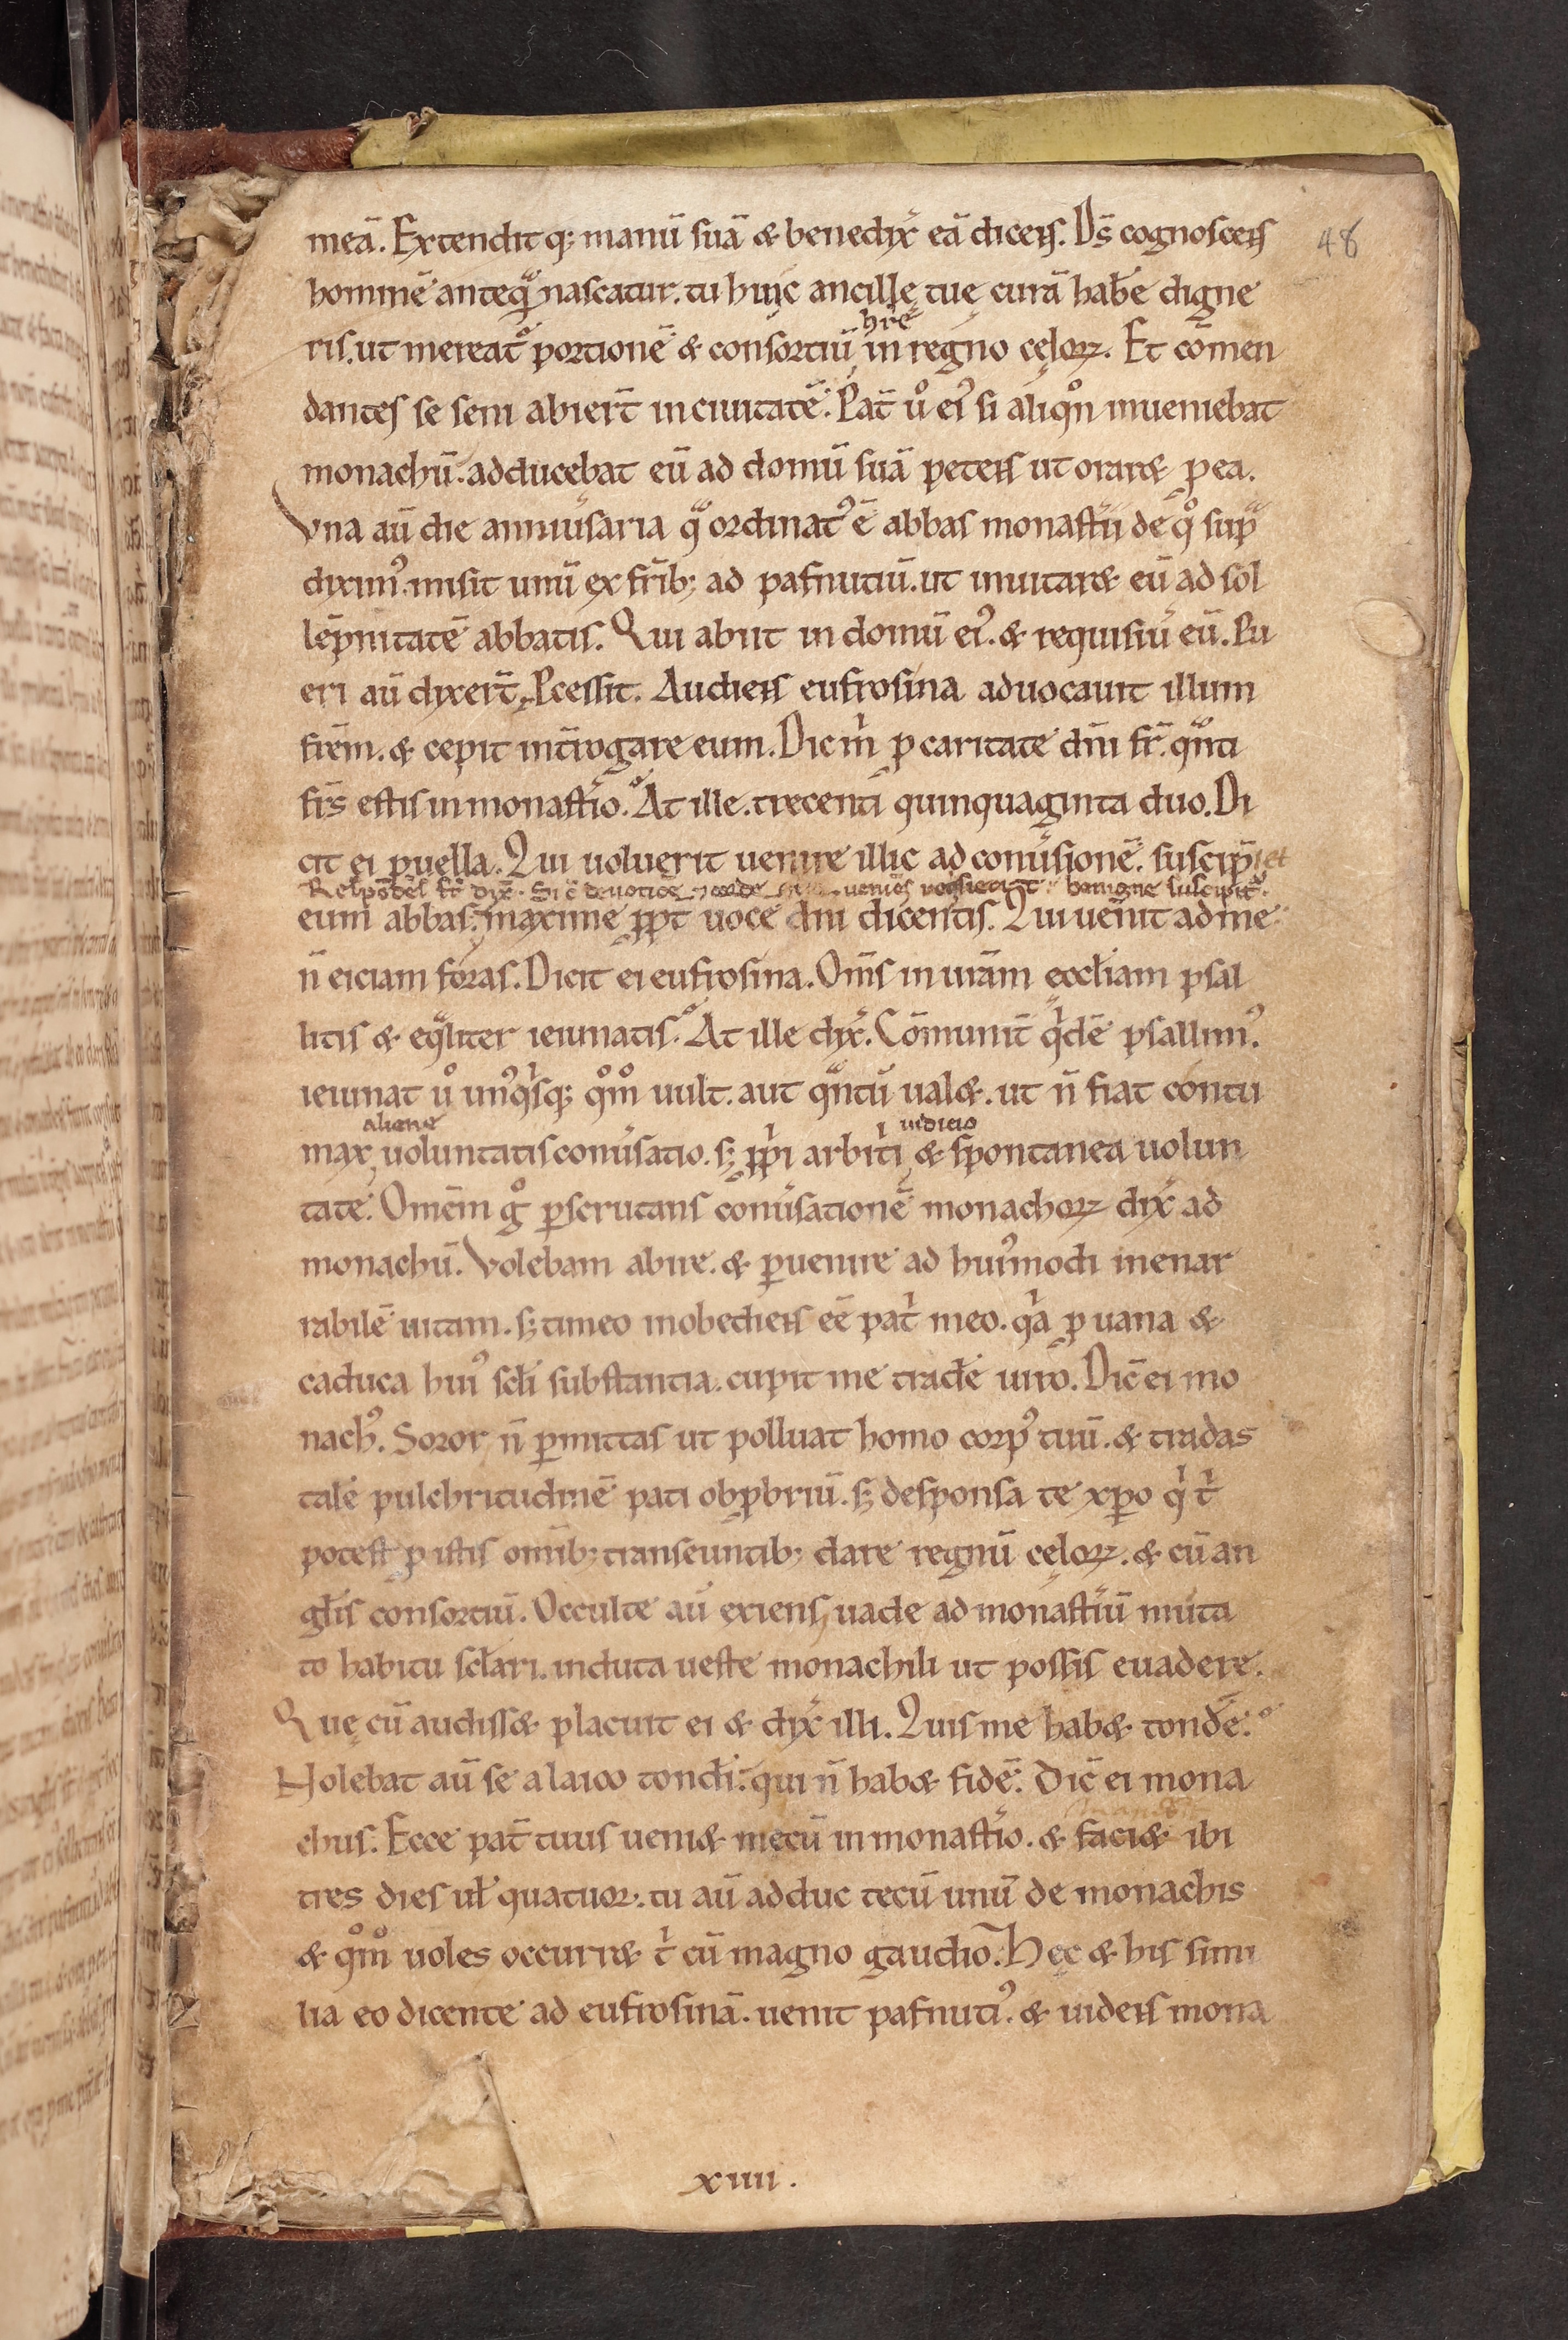 meā. Extendit q; manū suā & benedix̄ eā dicens. D̄s cognoscens
48
hominē anteqͣ nascatur. tu huic ancillę tuę curā hab̄e digne
hr̄e
ris. ut mereat᷑ portionē & consortiū in regno cęloꝝ. Et cōmen
dantes se seni abier̄t in ciuitatē. Pat̄ ů ei᾿ si aliqͦn inueniebat
monachū. adducebat eū ad domū suā petens ut orar& ꝓ ea.
Vna aū die anniūsaria qͣ ordinat᾿ ē abbas monast̄ii de qͦ supͣ
diximᵒ. misit unū ex fr̄ib; ad pafnutiū. ut inuitar& eū ad sol
lēpnitatē abbatis. Qui abiit in domū ei᾿. & requisiū eū. Pu
eri aū dixer̄t. Ꝓcessit. Audiens eufrosina aduocauit illum
fr̄em. & cepit int̄rogare eum. Dic mͥ ꝓ caritate dn̄i fr̄. qͣnti
fr̄s estis in monast̄io. At ille. trecenti quinquaginta duo. Di
cit ei puella. Qui uoluerit uenire illic ad conūsionē. suscip̄iet
Respōdēs fr̄ dix̄. Si ē deuotiōe uenies benigne suscipit᷑.
eum abbas. maxime ꝓpt̄ uocē dn̄i dicentis. Qui uēnit ad me
n̄ eiciam foras. Dicit ei eufrosina. Om̄s in unam eccl̄iam psal
litis & eqͣliter ieiunatis. At ille dix̄. Cōmunit̄ qͥdē psallimᵒ.
ieiunat ů unᵒqͥsq; qͦmͦ uult. aut qͣntū ual&. ut n̄ fiat contu
aliene iudicio
max uoluntatis conūsatio. s; ꝓpͥi arbitͥi & spontanea uolun
tate. Omēm gͦ ꝑscrutans conūsationē monachoꝝ dix̄ ad
monachū. Volebam abire. & ꝑuenire ad hui᾿modi inenar
rabilē uitam. s; timeo inobediens eē patͥ meo. qͥa ꝓ uana &
caduca hui᾿ scl̄i substantia. cupit me trad̄e uiro. Dic̄ ei mo
nachᵒ. Soror n̄ ꝑmittas ut polluat homo corpᵒ tuū. & tradas
talē pulchritudinē pati obꝓbriū. s; desponsa te xp̄o qͥ tͥ
potest ꝓ istis om̄ib; transeuntib; dare regnū cęloꝝ. & cū an
gl̄is consortiū. Occulte aū exiens uade ad monast̄iū muta
to habitu scl̄ari. induta ueste monachili ut possis euadere.
Quę cū audiss& placuit ei & dix̄ illi. Quis me hab& tond̄e.
Nolebat aū se a laico tondi. qui n̄ hab& fidē. Dic̄ ei mona
chus. Ecce pat̄ tuus ueni& mecū in monast̄io. & faci& ibi
tres dies ul̄ quatuor. tu aū adduc tecū unū de monachis
& qͦmͦ uoles occurr& tͥ cū magno gaudio. Hęc & his simi
lia eo dicente ad eufrosinā. uenit pafnutiᵒ. & uidens mona
xiiii.